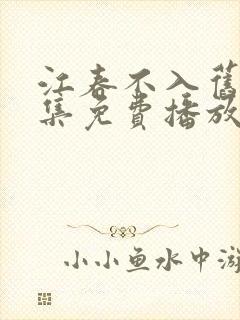 江春不入舊
集免費播放
小小鱼水中游